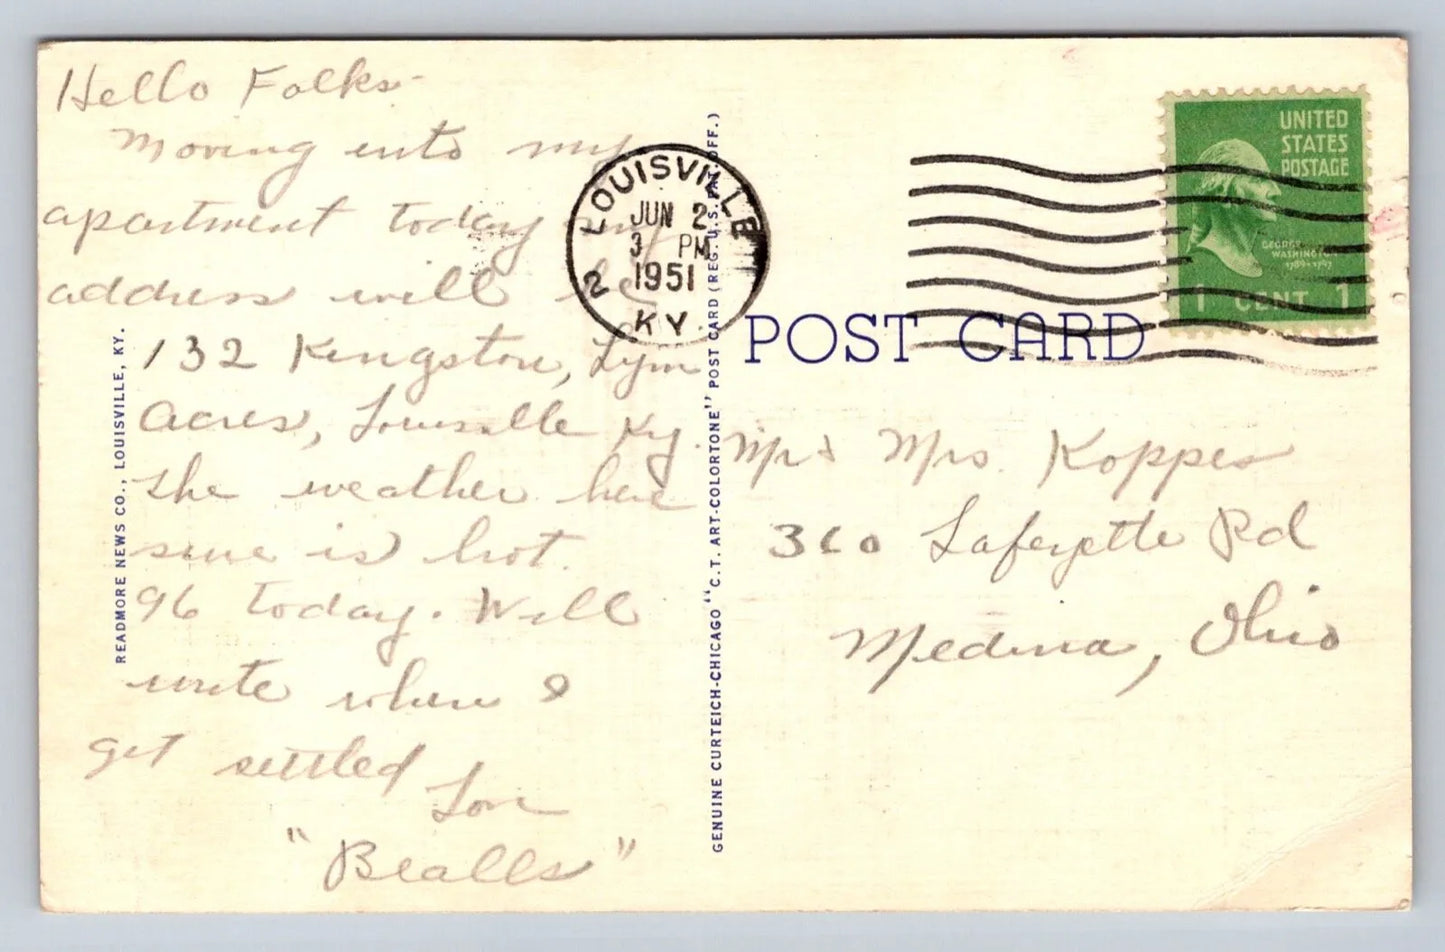 Hello Folks-
Moving into my
apartment today my
address will be
132 Kingston, Lynn
Acres, Louisville Ky.
The weather here
sure is hot.
96 today. Will
write when I
get settled
Love
"Bealls"
READMORE NEWS CO., LOUISVILLE, KY.
GENUINE CURTEICH-CHICAGO "C.T. ART-COLORTONE" POST CARD (REG. U.S. PAT. OFF.)
LOUISVILLE
JUN 2
3 PM
1951
2
KY.
UNITED
STATES
POSTAGE
GEORGE
WASHINGTON
1789-1797
1 CENT 1
POST CARD
Mr & Mrs. Koppes
360 Lafayette Rd
Medina, Ohio